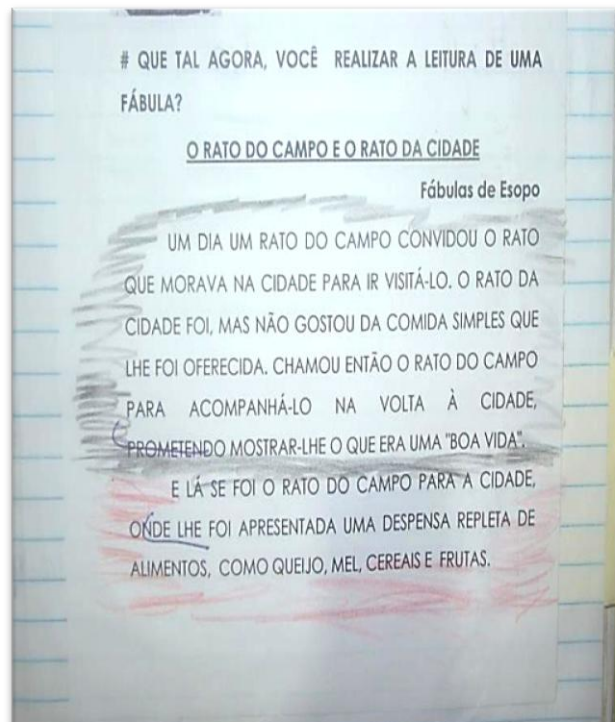 # QUE TAL AGORA, VOCÊ REALIZAR A LEITURA DE UMA
FÁBULA?
O RATO DO CAMPO E O RATO DA CIDADE
Fábulas de Esopo
UM DIA UM RATO DO CAMPO CONVIDOU O RATO
QUE MORAVA NA CIDADE PARA IR VISITÁ-LO. O RATO DA
CIDADE FOI, MAS NÃO GOSTOU DA COMIDA SIMPLES QUE
LHE FOI OFERECIDA. CHAMOU ENTÃO O RATO DO CAMPO
PARA ACOMPANHÁ-LO NA VOLTA À CIDADE,
PROMETENDO MOSTRAR-LHE O QUE ERA UMA "BOA VIDA".
E LÁ SE FOI O RATO DO CAMPO PARA A CIDADE,
ONDE LHE FOI APRESENTADA UMA DESPENSA REPLETA DE
ALIMENTOS, COMO QUEIJO, MEL, CEREAIS E FRUTAS.